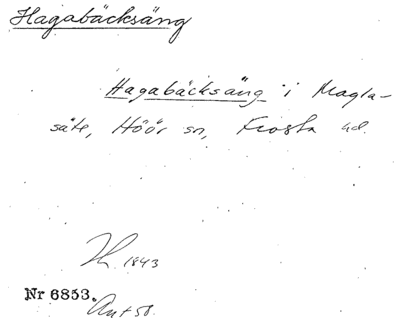 Hagabäcksäng
Hagabäcksäng i Magla-
säte, Höör sn, Frosta hd.
1843
Nr 6853.
Ant 50.